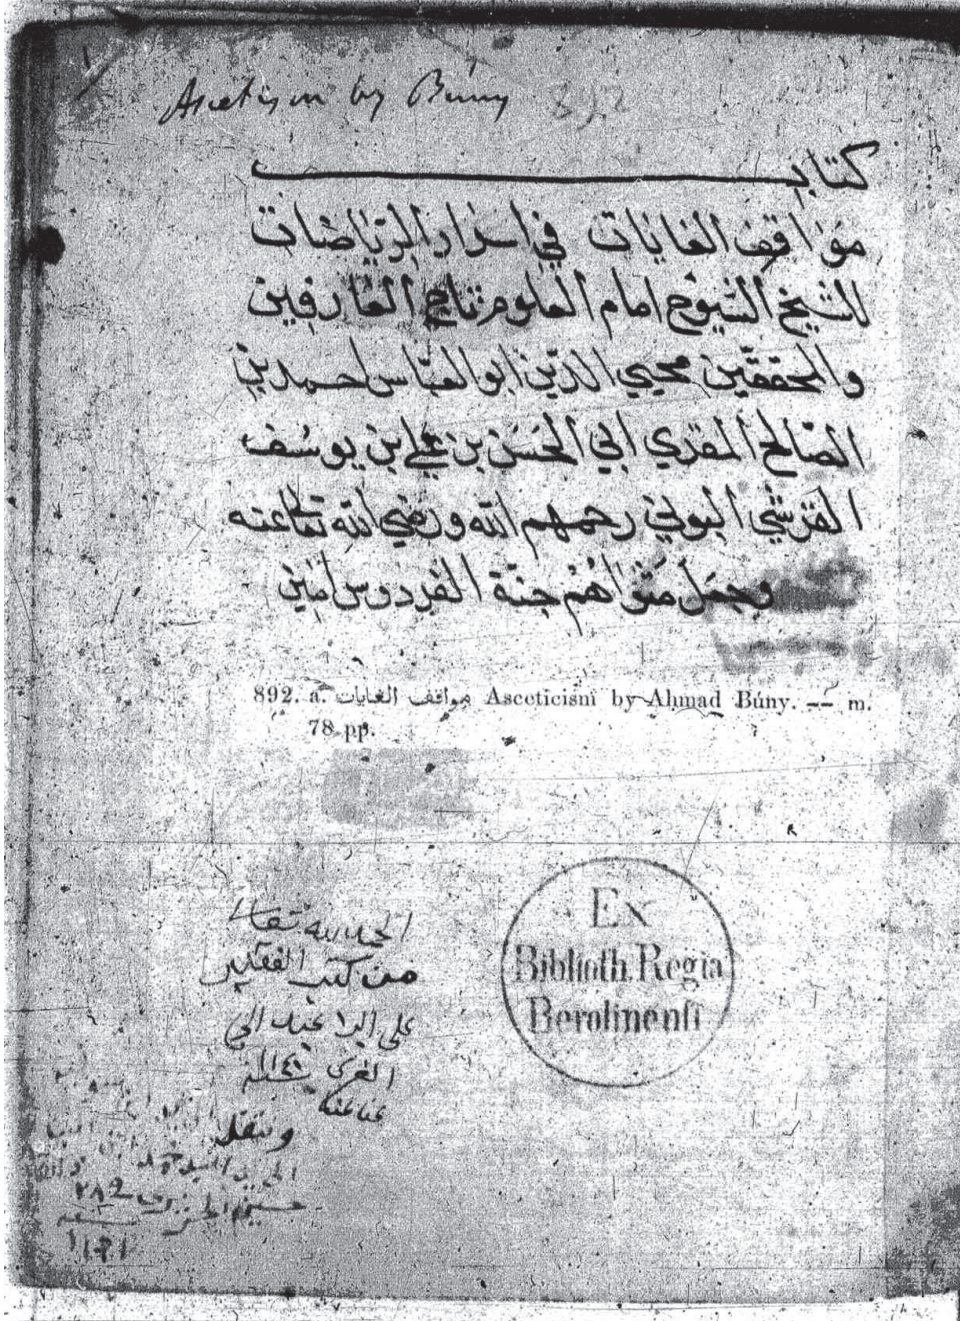 Asceticism by Búny 892
كتاب
مَوَاقِف الغايات في اسرار الرياضات
للشيخ الشيوخ امام العلوم تاج العارفين
والمحققين محيي الدين ابو العباس احمد بن
الصالح المقري ابي الحسن بن علي ابن يوسف
القرشي البوني رحمهم الله ورضي الله تعالى عنه
وجعل مثواهم جنة الفردوس امين
892. a. مواقف الغايات Asceticism by Ahmad Búny. -- m.
78 pp.
الحمد لله تعالى
من كتب الفقير
علي
الغزي
عفا عنه
Ex
Biblioth. Regia
Berolinensi